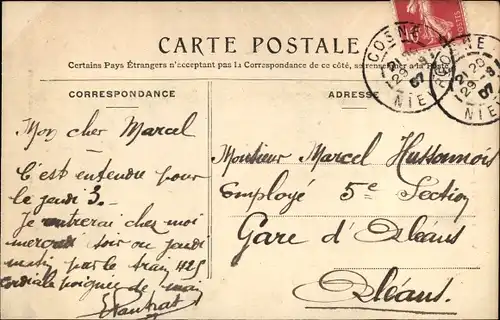 CARTE POSTALE
Certains Pays Étrangers n'acceptant pas la Correspondance de ce côté, se renseigner à la Poste
CORRESPONDANCE
ADRESSE
COSNE
NIE
COSNE
NIE
Mon cher Marcel
C'est entendu pour
le jeudi 3.
Je rentrerai chez moi
mercredi soir ou jeudi
matin par le train 425
Cordiale poignée de main
Monsieur Marcel Hussonnois
Employé 5e Section
Gare d'Orléans
Orléans.